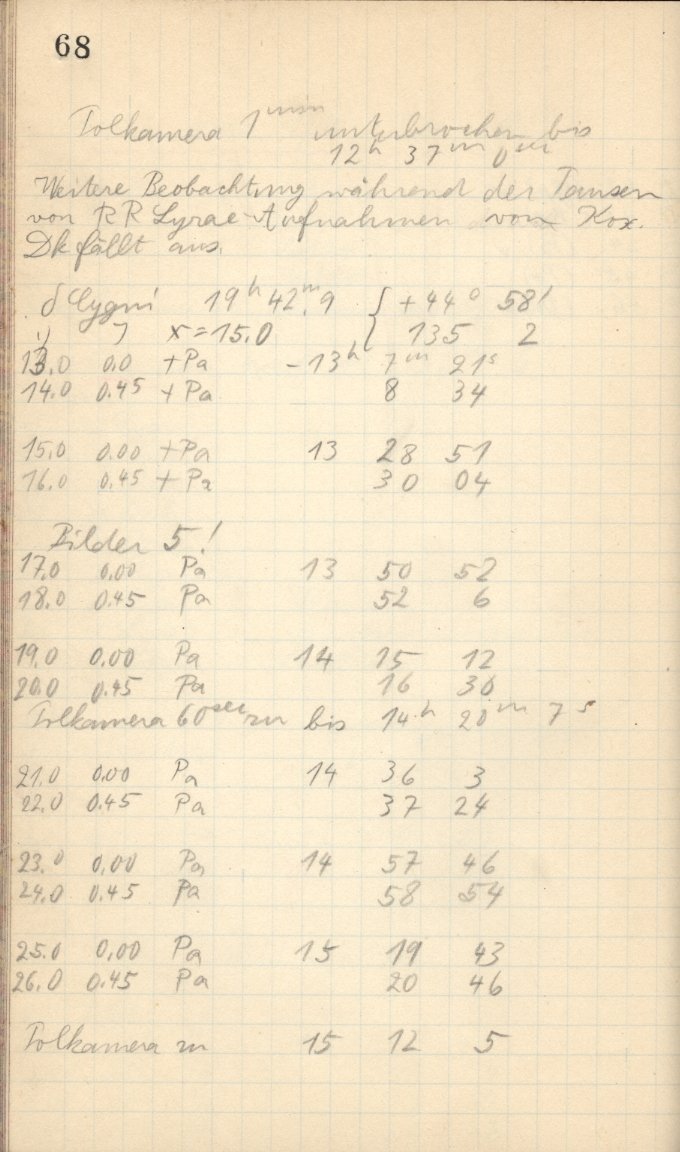 68
Polkamera 1 min unterbrochen bis
12h 37m 0 sec
Weitere Beobachtung während der Pausen
von RR Lyrae-Aufnahmen von Kox.
Dk fällt aus.
δ Cygni 19h 42m.9 { +44° 58'
x=15.0 135 2
13.0 0.0 +Pa -13h 7m 21s
14.0 0.45 +Pa 8 34
15.0 0.00 +Pa 13 28 51
16.0 0.45 +Pa 30 04
Bilder 5!
17.0 0.00 Pa 13 50 52
18.0 0.45 Pa 52 6
19.0 0.00 Pa 14 15 12
20.0 0.45 Pa 16 30
Polkamera 60sec zu bis 14h 20m 7s
21.0 0.00 Pa 14 36 3
22.0 0.45 Pa 37 24
23.0 0.00 Pa 14 57 46
24.0 0.45 Pa 58 54
25.0 0.00 Pa 15 19 43
26.0 0.45 Pa 20 46
Polkamera zu 15 12 5